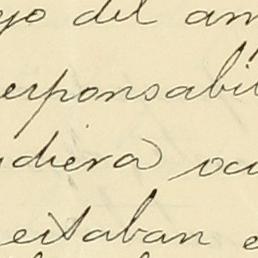 go del am
responsabil
udiera ocu
estaban e